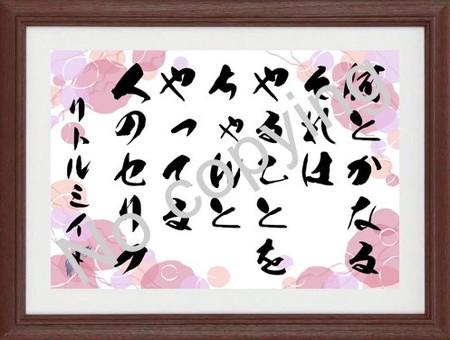 何とかなる
それは
やることを
ちゃんと
やってる
人のセリフ
リトルミイ
No copying